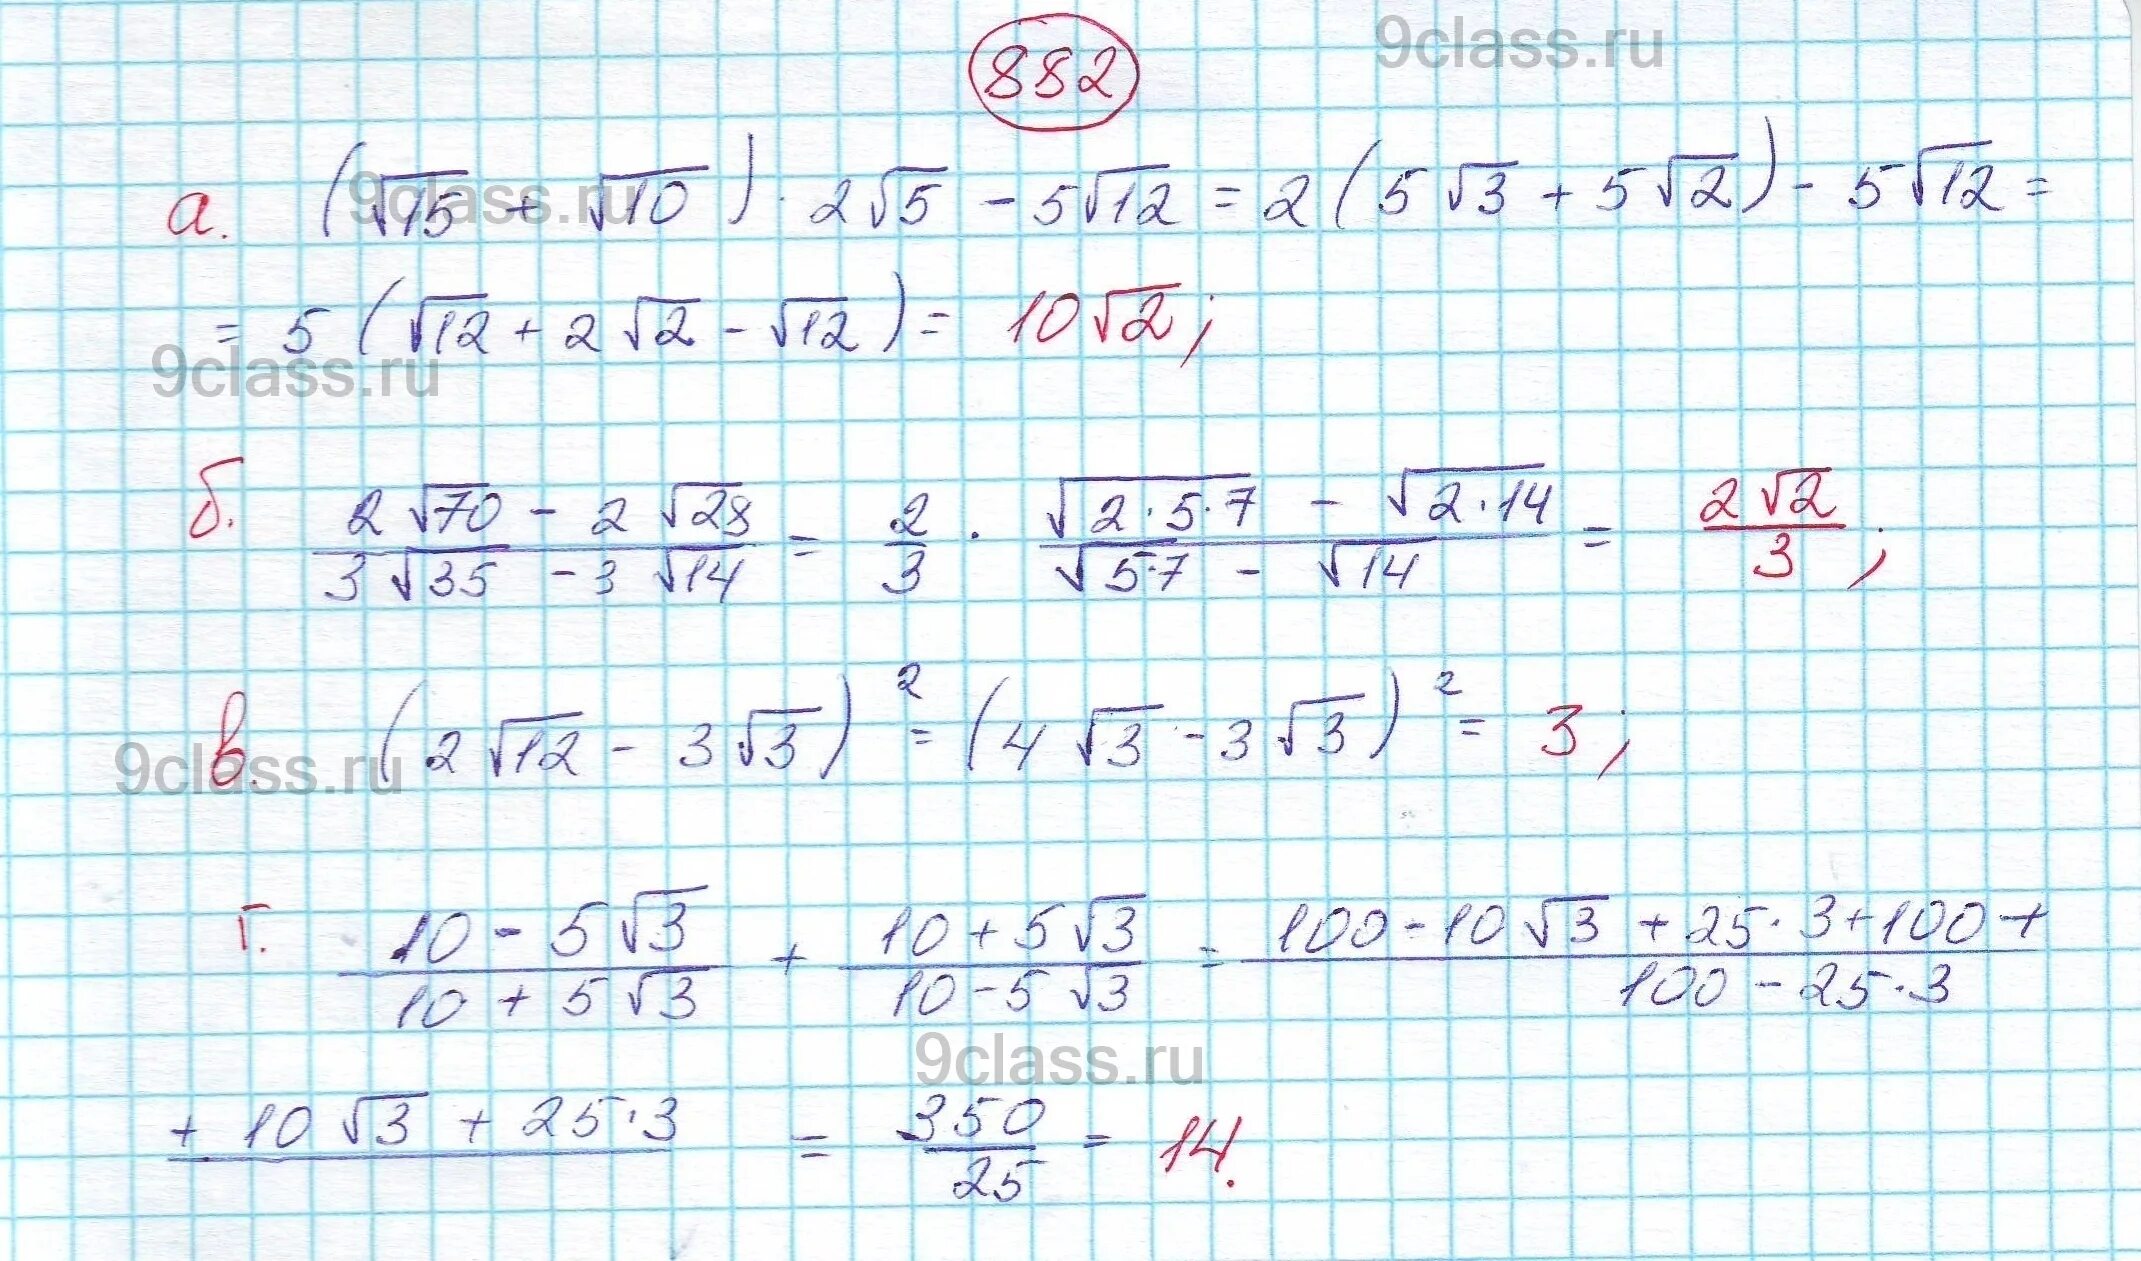 9class.ru
882
а. (√15 + √10) · 2√5 - 5√12 = 2(5√3 + 5√2) - 5√12 =
9class.ru
= 5(√12 + 2√2 - √12) = 10√2;
9class.ru
б. (2√70 - 2√28)/(3√35 - 3√14) = 2/3 · (√2·5·7 - √2·14)/(√5·7 - √14) = 2√2/3;
в. (2√12 - 3√3)² = (4√3 - 3√3)² = 3;
9class.ru
г. (10 - 5√3)/(10 + 5√3) + (10 + 5√3)/(10 - 5√3) = (100 - 10√3 + 25·3 + 100 +)/(100 - 25·3)
9class.ru
+ 10√3 + 25·3 = 350/25 = 14.